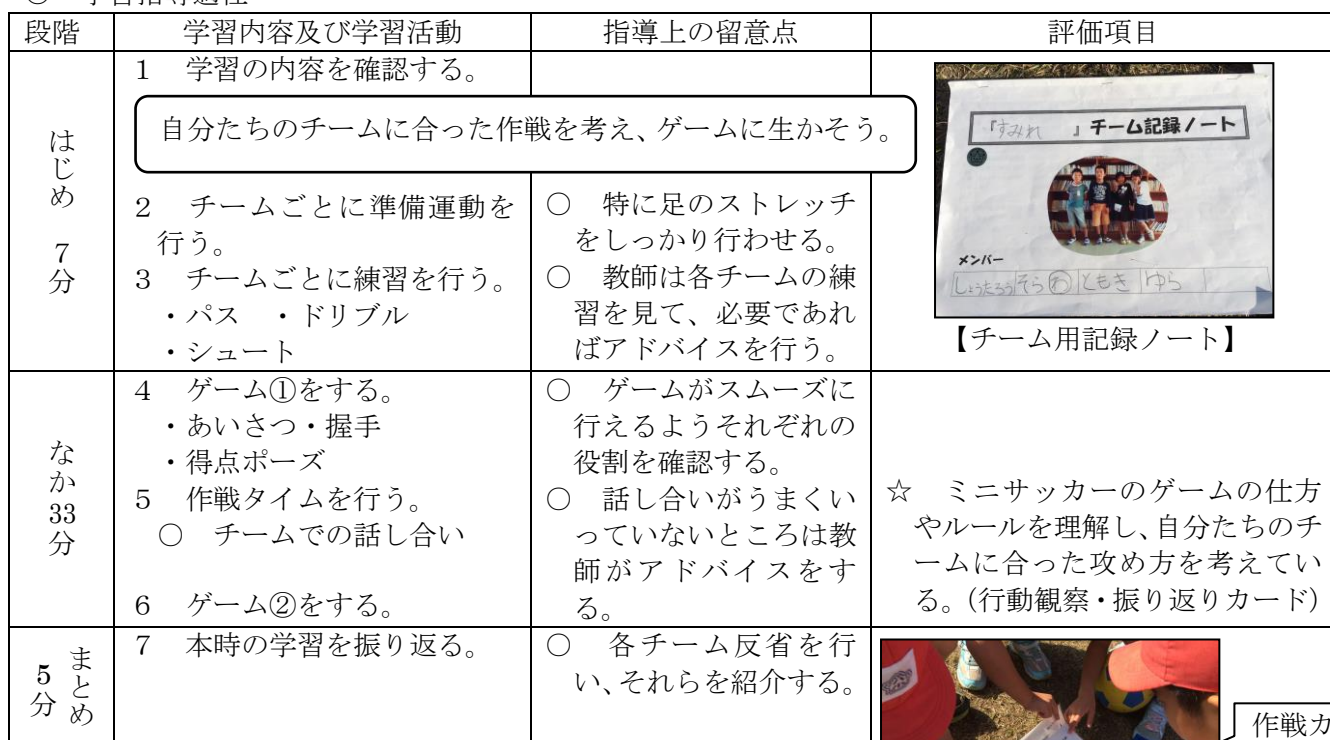 段階 学習内容及び学習活動 指導上の留意点 評価項目
はじめ 7分
1 学習の内容を確認する。
自分たちのチームに合った作戦を考え、ゲームに生かそう。
2 チームごとに準備運動を
行う。
3 チームごとに練習を行う。
・パス ・ドリブル
・シュート
○ 特に足のストレッチ
をしっかり行わせる。
○ 教師は各チームの練
習を見て、必要であれ
ばアドバイスを行う。
『すみれ 』チーム記録ノート
メンバー
しょうたろう そら わ ともき ゆら
【チーム用記録ノート】
なか 33分
4 ゲーム①をする。
・あいさつ・握手
・得点ポーズ
5 作戦タイムを行う。
○ チームでの話し合い
6 ゲーム②をする。
○ ゲームがスムーズに
行えるようそれぞれの
役割を確認する。
○ 話し合いがうまくい
っていないところは教
師がアドバイスをす
る。
☆ ミニサッカーのゲームの仕方
やルールを理解し、自分たちのチ
ームに合った攻め方を考えてい
る。(行動観察・振り返りカード)
まとめ 5分
7 本時の学習を振り返る。
○ 各チーム反省を行
い、それらを紹介する。
作戦カ